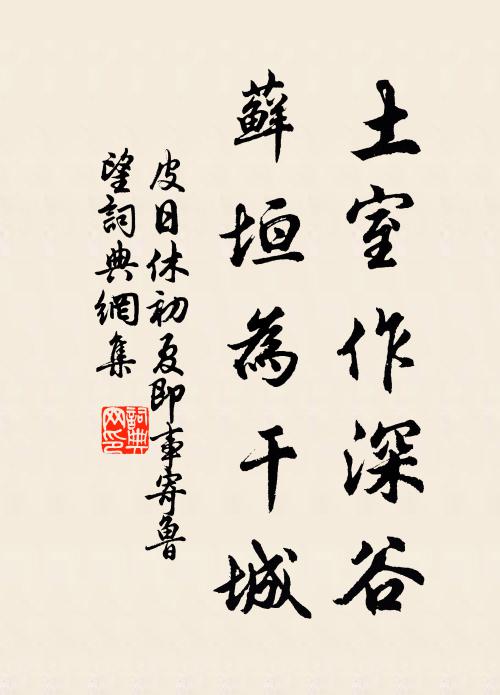 土室作深谷
蘚垣為干城
皮日休初夏即事寄魯
望詞典網集
詞典
网印